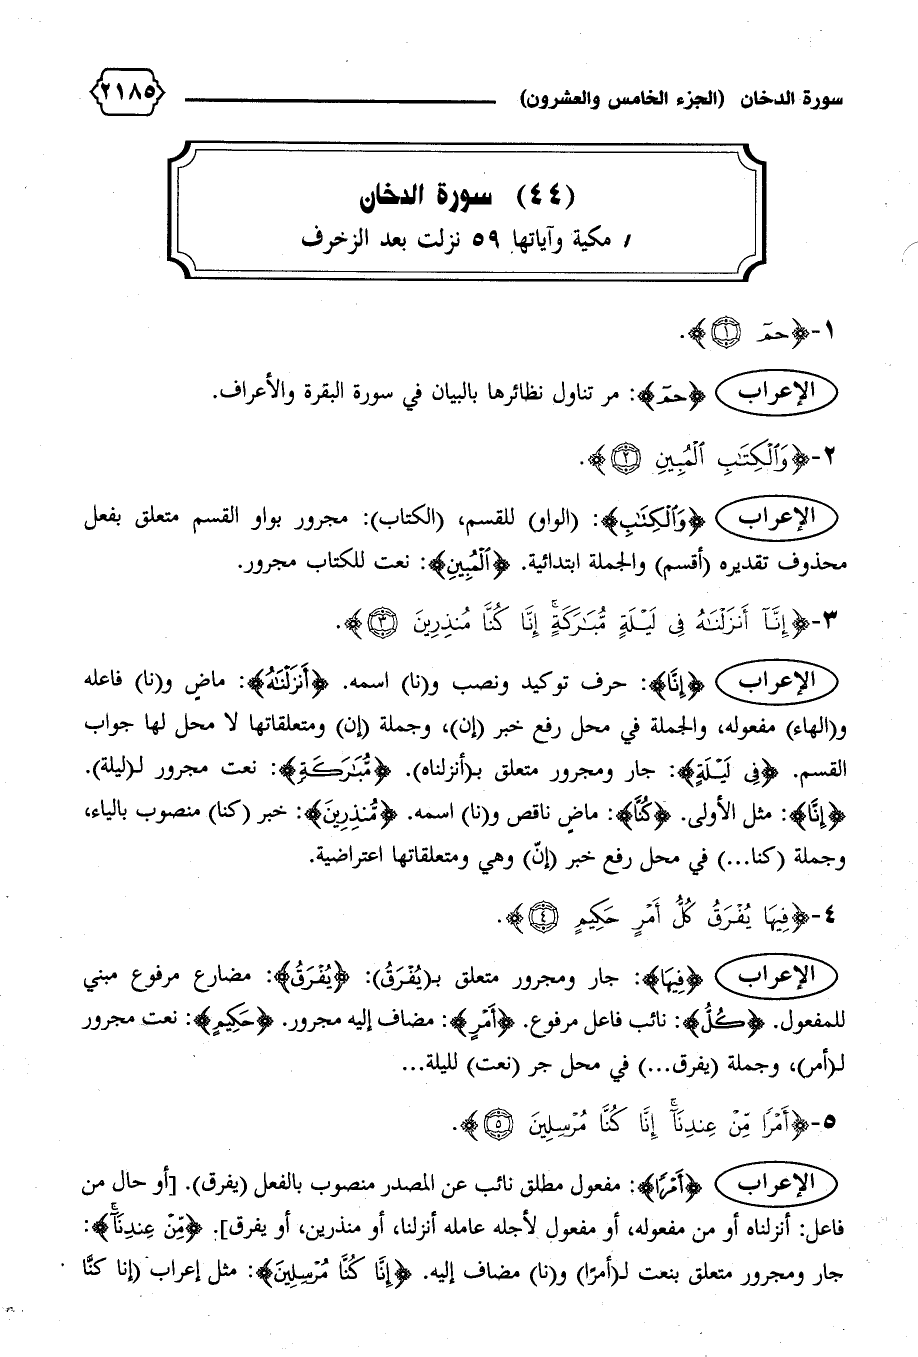 سورة الدخان (الجزء الخامس والعشرون) ٢١٨٥
(٤٤) سورة الدخان
مكية وآياتها ٥٩ نزلت بعد الزخرف
١- ﴿حمٓ ۝١﴾.
الإعراب ﴿حمٓ﴾: مر تناول نظائرها بالبيان في سورة البقرة والأعراف.
٢- ﴿وَٱلْكِتَٰبِ ٱلْمُبِينِ ۝٢﴾.
الإعراب ﴿وَٱلْكِتَٰبِ﴾: (الواو) للقسم، (الكتاب): مجرور بواو القسم متعلق بفعل
محذوف تقديره (أقسم) والجملة ابتدائية. ﴿ٱلْمُبِينِ﴾: نعت للكتاب مجرور.
٣- ﴿إِنَّآ أَنزَلْنَٰهُ فِى لَيْلَةٍ مُّبَٰرَكَةٍ ۚ إِنَّا كُنَّا مُنذِرِينَ ۝٣﴾.
الإعراب ﴿إِنَّا﴾: حرف توكيد ونصب و(نا) اسمه. ﴿أَنزَلْنَٰهُ﴾: ماضٍ و(نا) فاعله
و(الهاء) مفعوله، والجملة في محل رفع خبر (إن)، وجملة (إن) ومتعلقاتها لا محل لها جواب
القسم. ﴿فِى لَيْلَةٍ﴾: جار ومجرور متعلق بـ(أنزلناه). ﴿مُّبَٰرَكَةٍ﴾: نعت مجرور لـ(ليلة).
﴿إِنَّا﴾: مثل الأولى. ﴿كُنَّا﴾: ماضٍ ناقص و(نا) اسمه. ﴿مُنذِرِينَ﴾: خبر (كنا) منصوب بالياء،
وجملة (كنا...) في محل رفع خبر (إنّ) وهي ومتعلقاتها اعتراضية.
٤- ﴿فِيهَا يُفْرَقُ كُلُّ أَمْرٍ حَكِيمٍ ۝٤﴾.
الإعراب ﴿فِيهَا﴾: جار ومجرور متعلق بـ(يُفْرَقُ): ﴿يُفْرَقُ﴾: مضارع مرفوع مبني
للمفعول. ﴿كُلُّ﴾: نائب فاعل مرفوع. ﴿أَمْرٍ﴾: مضاف إليه مجرور. ﴿حَكِيمٍ﴾: نعت مجرور
لـ(أمر)، وجملة (يفرق...) في محل جر (نعت) لليلة...
٥- ﴿أَمْرًا مِّنْ عِندِنَآ ۚ إِنَّا كُنَّا مُرْسِلِينَ ۝٥﴾.
الإعراب ﴿أَمْرًا﴾: مفعول مطلق نائب عن المصدر منصوب بالفعل (يفرق). [أو حال من
فاعل: أنزلناه أو من مفعوله، أو مفعول لأجله عامله أنزلنا، أو منذرين، أو يفرق]. ﴿مِّنْ عِندِنَآ ۚ﴾:
جار ومجرور متعلق بنعت لـ(أمرًا) و(نا) مضاف إليه. ﴿إِنَّا كُنَّا مُرْسِلِينَ﴾: مثل إعراب (إنا كنَّا